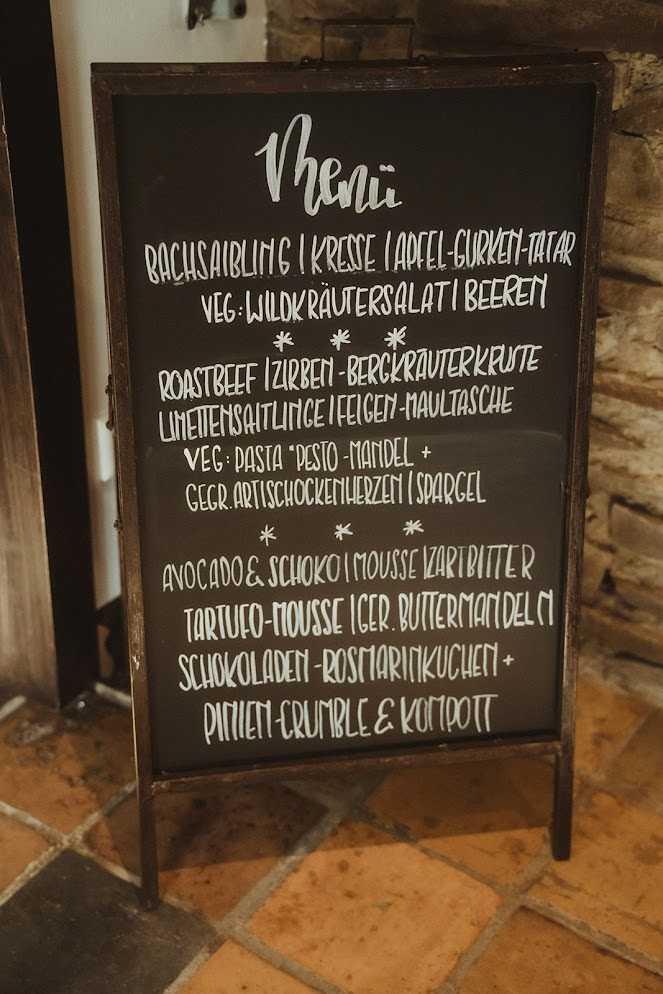 Menü
BACHSAIBLING | KRESSE | APFEL-GURKEN-TATAR
VEG: WILDKRÄUTERSALAT | BEEREN
* * *
ROASTBEEF | ZIRBEN-BERGKRÄUTERKRUSTE
LIMETTENSAITLINGE | FEIGEN-MAULTASCHE
VEG: PASTA "PESTO-MANDEL +
GEGR. ARTISCHOCKENHERZEN | SPARGEL
* * *
AVOCADO & SCHOKO | MOUSSE | ZARTBITTER
TARTUFO-MOUSSE | GER. BUTTERMANDELN
SCHOKOLADEN-ROSMARINKUCHEN +
PINIEN-CRUMBLE & KOMPOTT